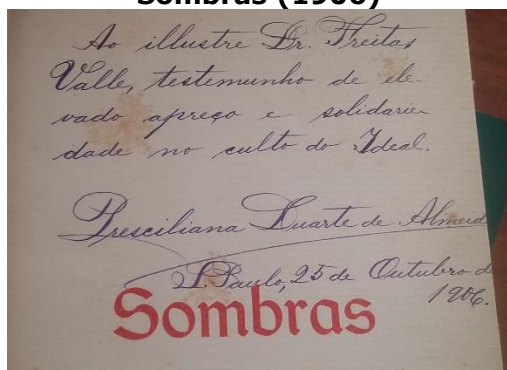 Sombras (1906)
Ao illustre Dr. Freitas
Valle, testemunho de ele-
vado apreço e solidarie-
dade no culto do Ideal.
Presciliana Duarte de Almeid
S. Paulo, 25 de Outubro de
1906.
Sombras